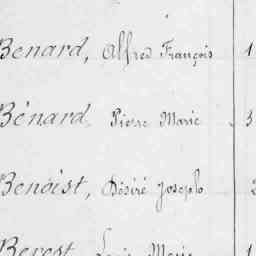 Benard, Alfred François 1
Bénard, Pierre Marie 3
Benoist, Désiré Joseph 2
Berest, Louis Marie 1